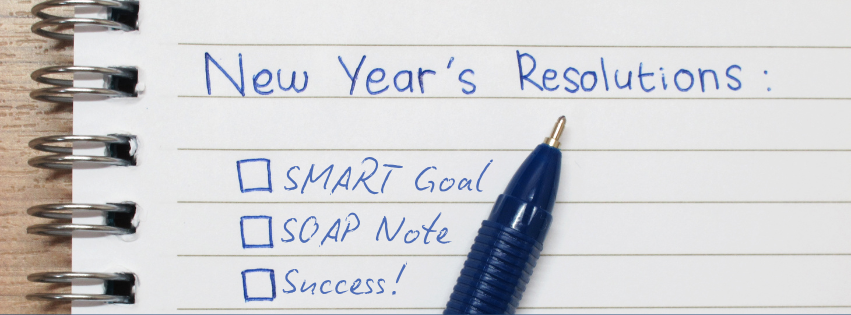 New Year's Resolutions:
SMART Goal
SOAP Note
Success!